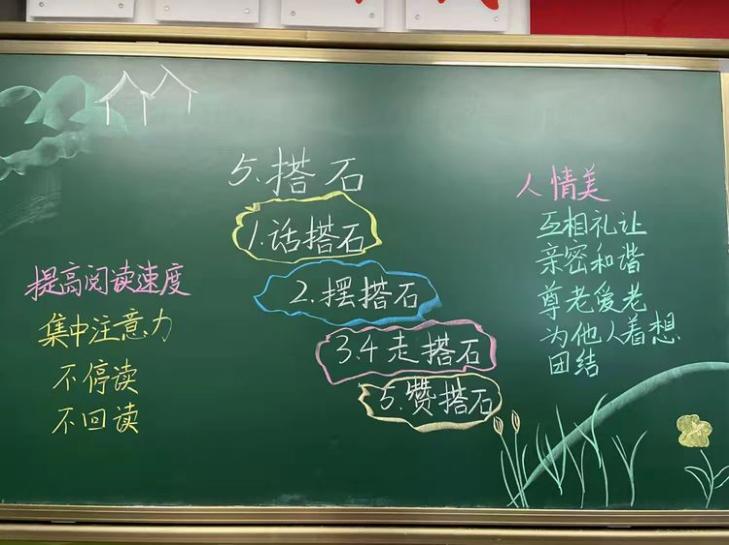 5.搭石
1.话搭石
2.摆搭石
3.4走搭石
5.赞搭石
提高阅读速度
集中注意力
不停读
不回读
人情美
互相礼让
亲密和谐
尊老爱老
为他人着想
团结